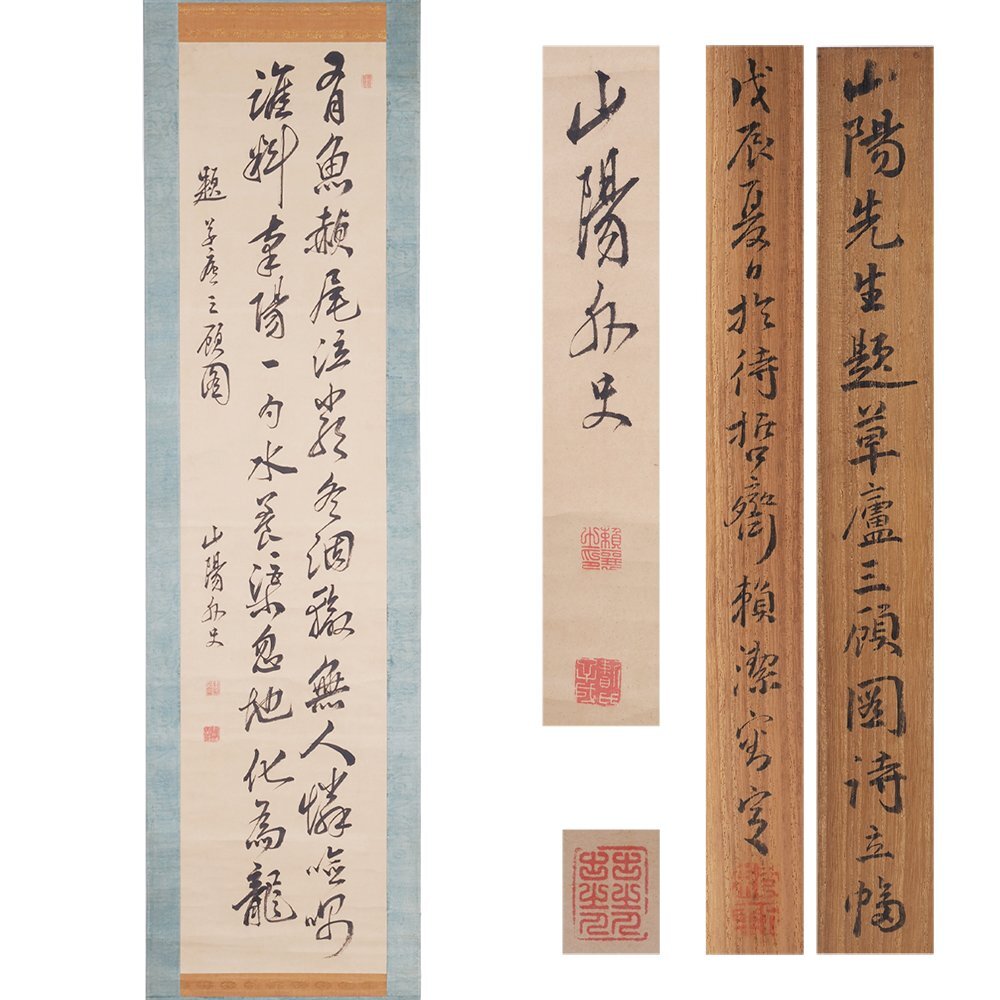 有魚赬尾泣窮冬涸轍無人憐噞喁
誰料南陽一勺水養渠忽地化為龍
題草廬三顧圖
山陽外史
山陽外史
賴襄之印
山陽先生題草廬三顧圖詩立幅
戊辰夏日於待哲齋賴潔審定